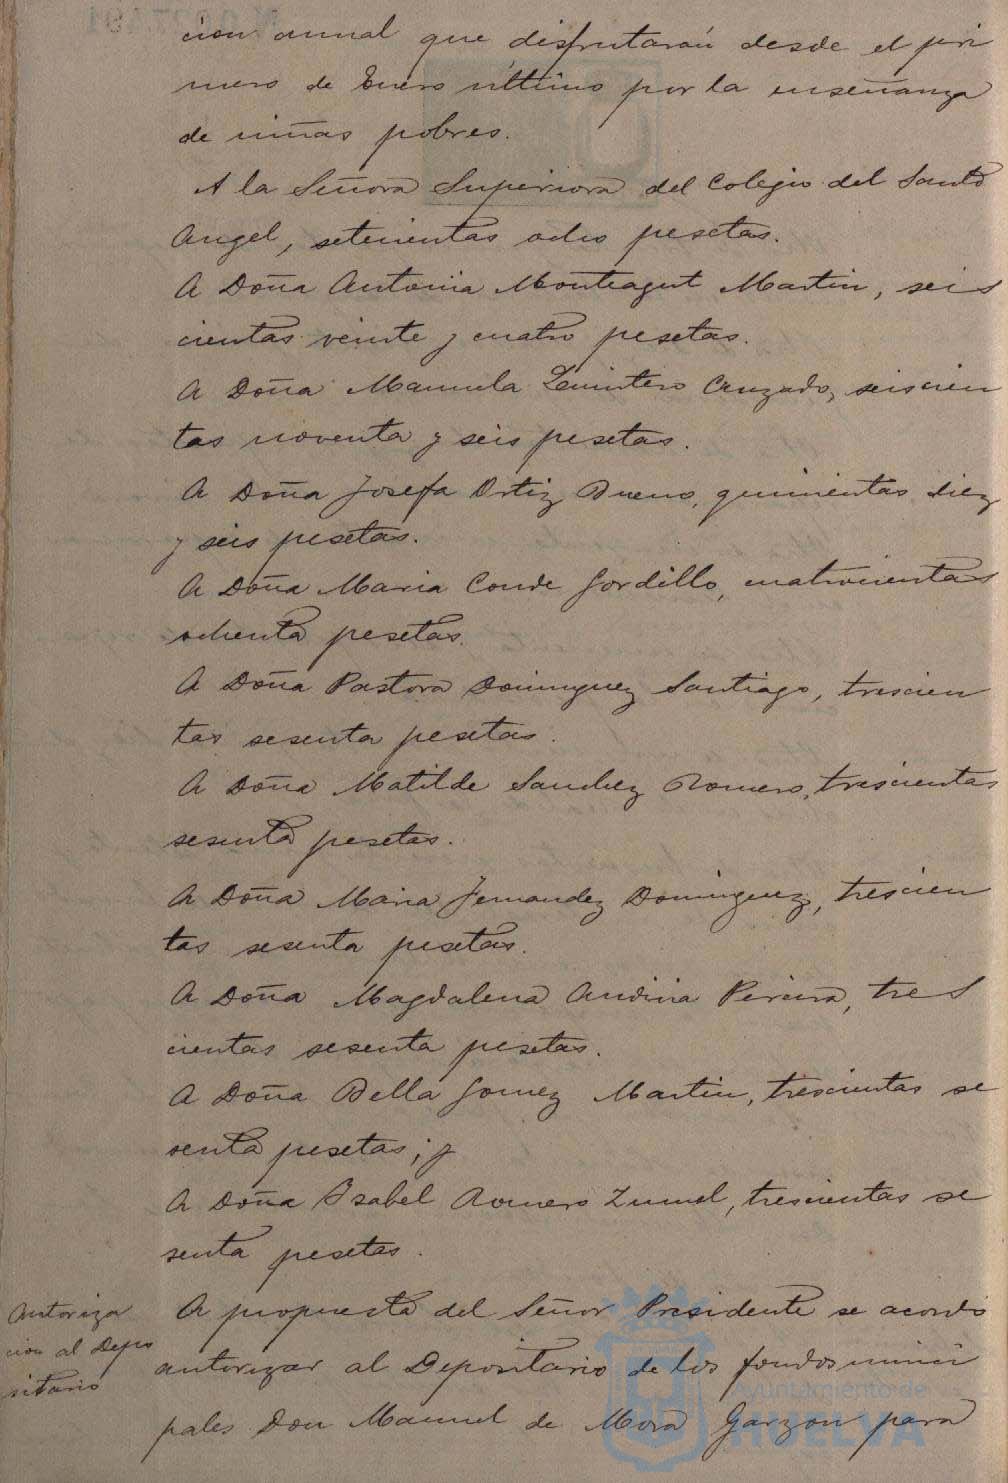 cion anual que disfrutarán desde el pri
mero de Enero último por la enseñanza
de niñas pobres.
A la Señora Superiora del Colegio del Santo
Angel, setecientas ocho pesetas.
A Doña Antonia Monteagut Martin, seis
cientas veinte y cuatro pesetas.
A Doña Manuela Quintero Cruzado, seiscien
tas noventa y seis pesetas.
A Doña Josefa Ortiz Bueno, quinientas diez
y seis pesetas.
A Doña Maria Conde Gordillo, cuatrocientas
ochenta pesetas.
A Doña Pastora Dominguez Santiago, trescien
tas sesenta pesetas.
A Doña Matilde Sanchez Romero, trescientas
sesenta pesetas.
A Doña Maria Fernandez Dominguez, trescien
tas sesenta pesetas.
A Doña Magdalena Andivia Pereira, tres
cientas sesenta pesetas.
A Doña Bella Gomez Martin, trescientas se
senta pesetas; y
A Doña Isabel Romero Zumel, trescientas se
senta pesetas.
Autoriza
cion al Depo
sitario
A propuesta del Señor Presidente se acordó
autorizar al Depositario de los fondos munici
pales Don Manuel de Mora Garzon para
Ayuntamiento de
HUELVA